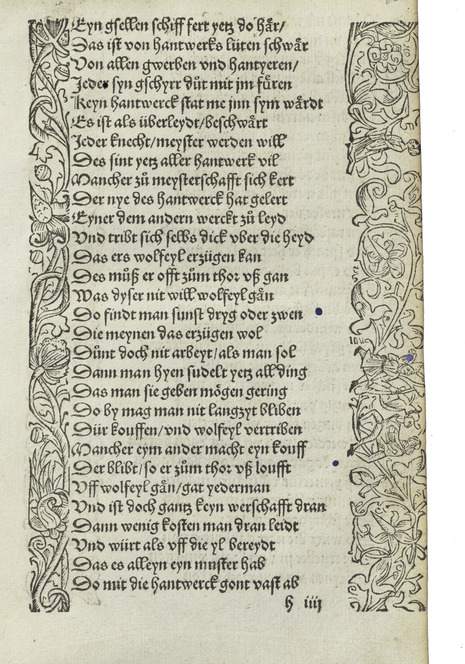 Eyn gsellen schiff fert yetz do här/
Das ist von hantwercks lüten schwär
Von allen gwerben vnd hantyeren/
Jeder syn gschyrr důt mit jm fůren
Keyn hantwerck stat me jnn sym wärdt
Es ist als überleydt/beschwärt
Jeder knecht/meyster werden will
Des sint yetz aller hantwerk vil
Mancher zů meysterschafft sich kert
Der nye des hantwerck hat gelert
Eyner dem andern werckt zů leyd
Vnd tribt sich selbs dick vber die heyd
Das ers wolfeyl erzügen kan
Des můß er offt zům thor vß gan
Was dyser nit will wolfeyl gån
Do findt man sunst dryg oder zwen
Die meynen das erzügen wol
Dünt doch nit arbeyt/als man sol
Dann man hyen sudelt yetz all ding
Das man sie geben mögen gering
Do by mag man nit langzyt bliben
Dür kouffen/vnd wolfeyl vertriben
Mancher eym ander macht eyn kouff
Der blibt/so er zům thor vß loufft
Vff wolfeyl gån/gat yederman
Vnd ist doch gantz keyn werschafft dran
Dann wenig kosten man dran leidt
Vnd würt als vff die yl bereydt
Das es alleyn eyn muster hab
Do mit die hantwerck gont vast ab
h iiij